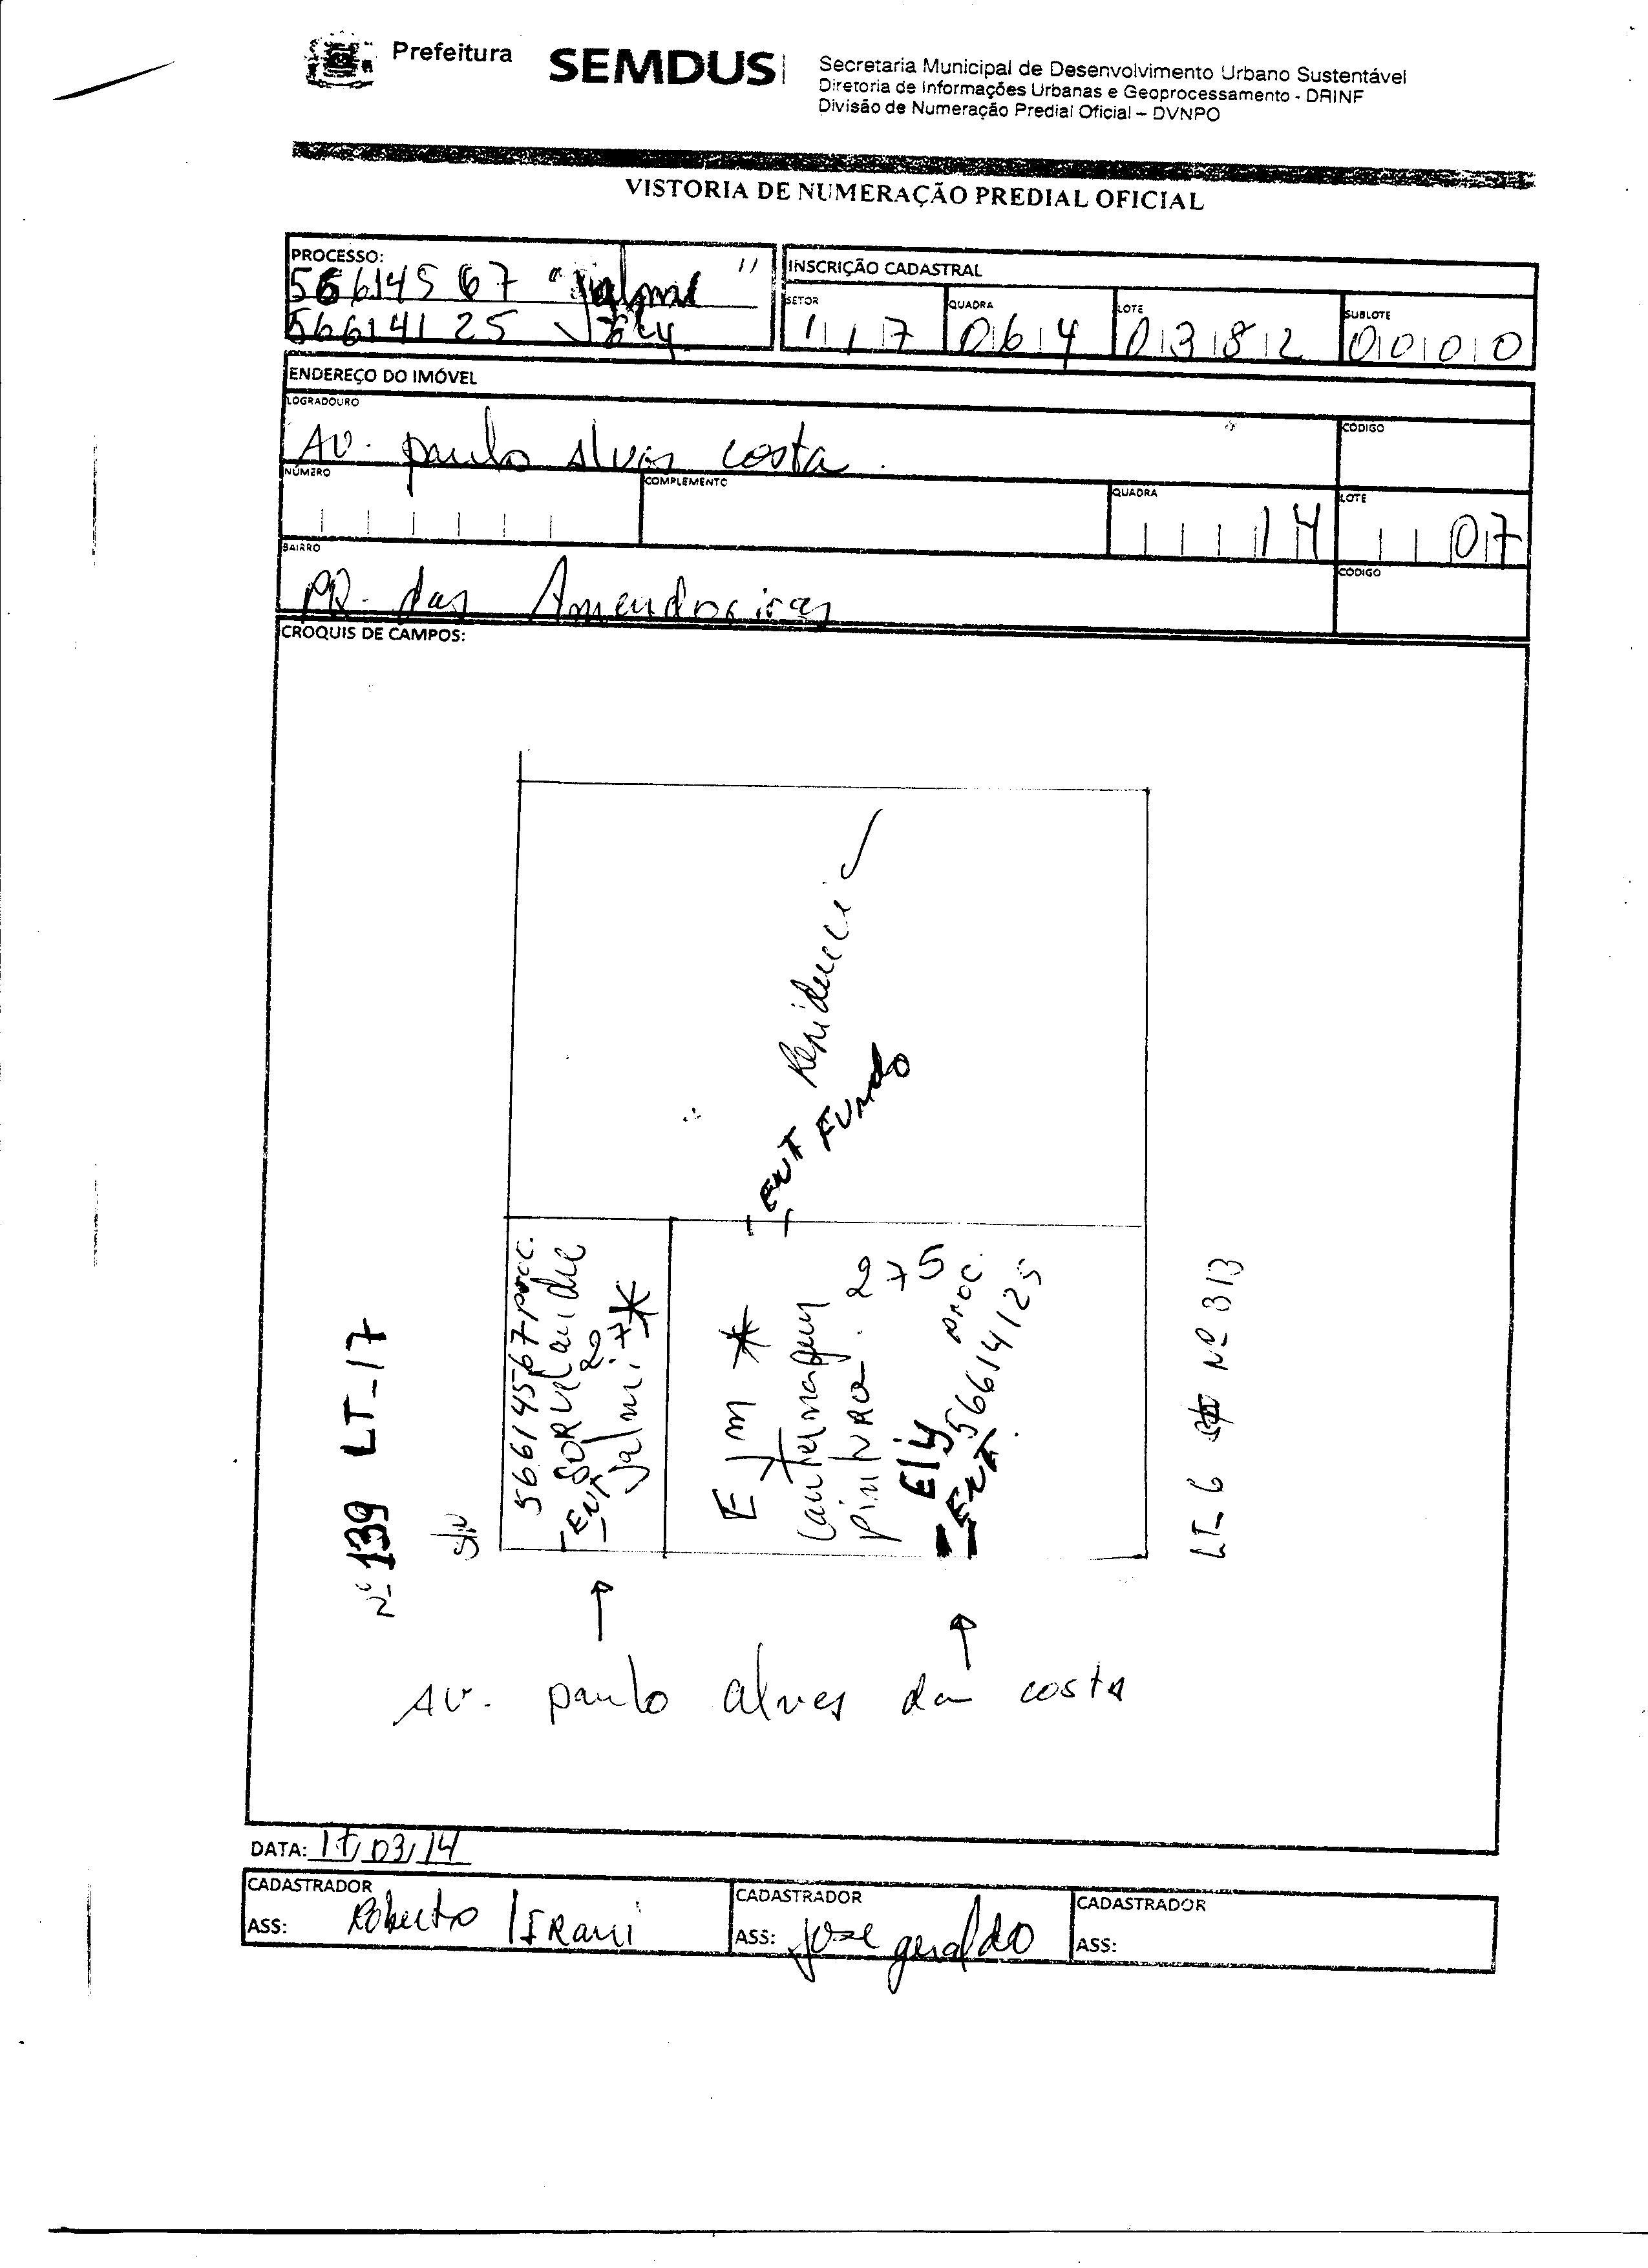 Prefeitura
SEMDUS
Secretaria Municipal de Desenvolvimento Urbano Sustentável
Diretoria de Informações Urbanas e Geoprocessamento - DRINF
Divisão de Numeração Predial Oficial – DVNPO
VISTORIA DE NUMERAÇÃO PREDIAL OFICIAL
PROCESSO:
56614567 "Jalmi"
56614125 Ely
INSCRIÇÃO CADASTRAL
SETOR
117
QUADRA
064
LOTE
0382
SUBLOTE
0000
ENDEREÇO DO IMÓVEL
LOGRADOURO
AV. paulo alves costa.
CÓDIGO
NÚMERO
COMPLEMENTO
QUADRA
14
LOTE
07
BAIRRO
PQ. das Amendoeiras
CÓDIGO
CROQUIS DE CAMPOS:
Residencia
ENT FUNDO
56614567 proc.
ENT
Jalmi *
E JM *
Lanternagem
pintura. 275
Ely proc.
ENT 56614125
Nº 139 LT-17
S/N
LT-6 Nº 313
AV. paulo alves da costa
DATA: 17/03/14
CADASTRADOR
ASS: Roberto / IRani
CADASTRADOR
ASS: Jose geraldo
CADASTRADOR
ASS: